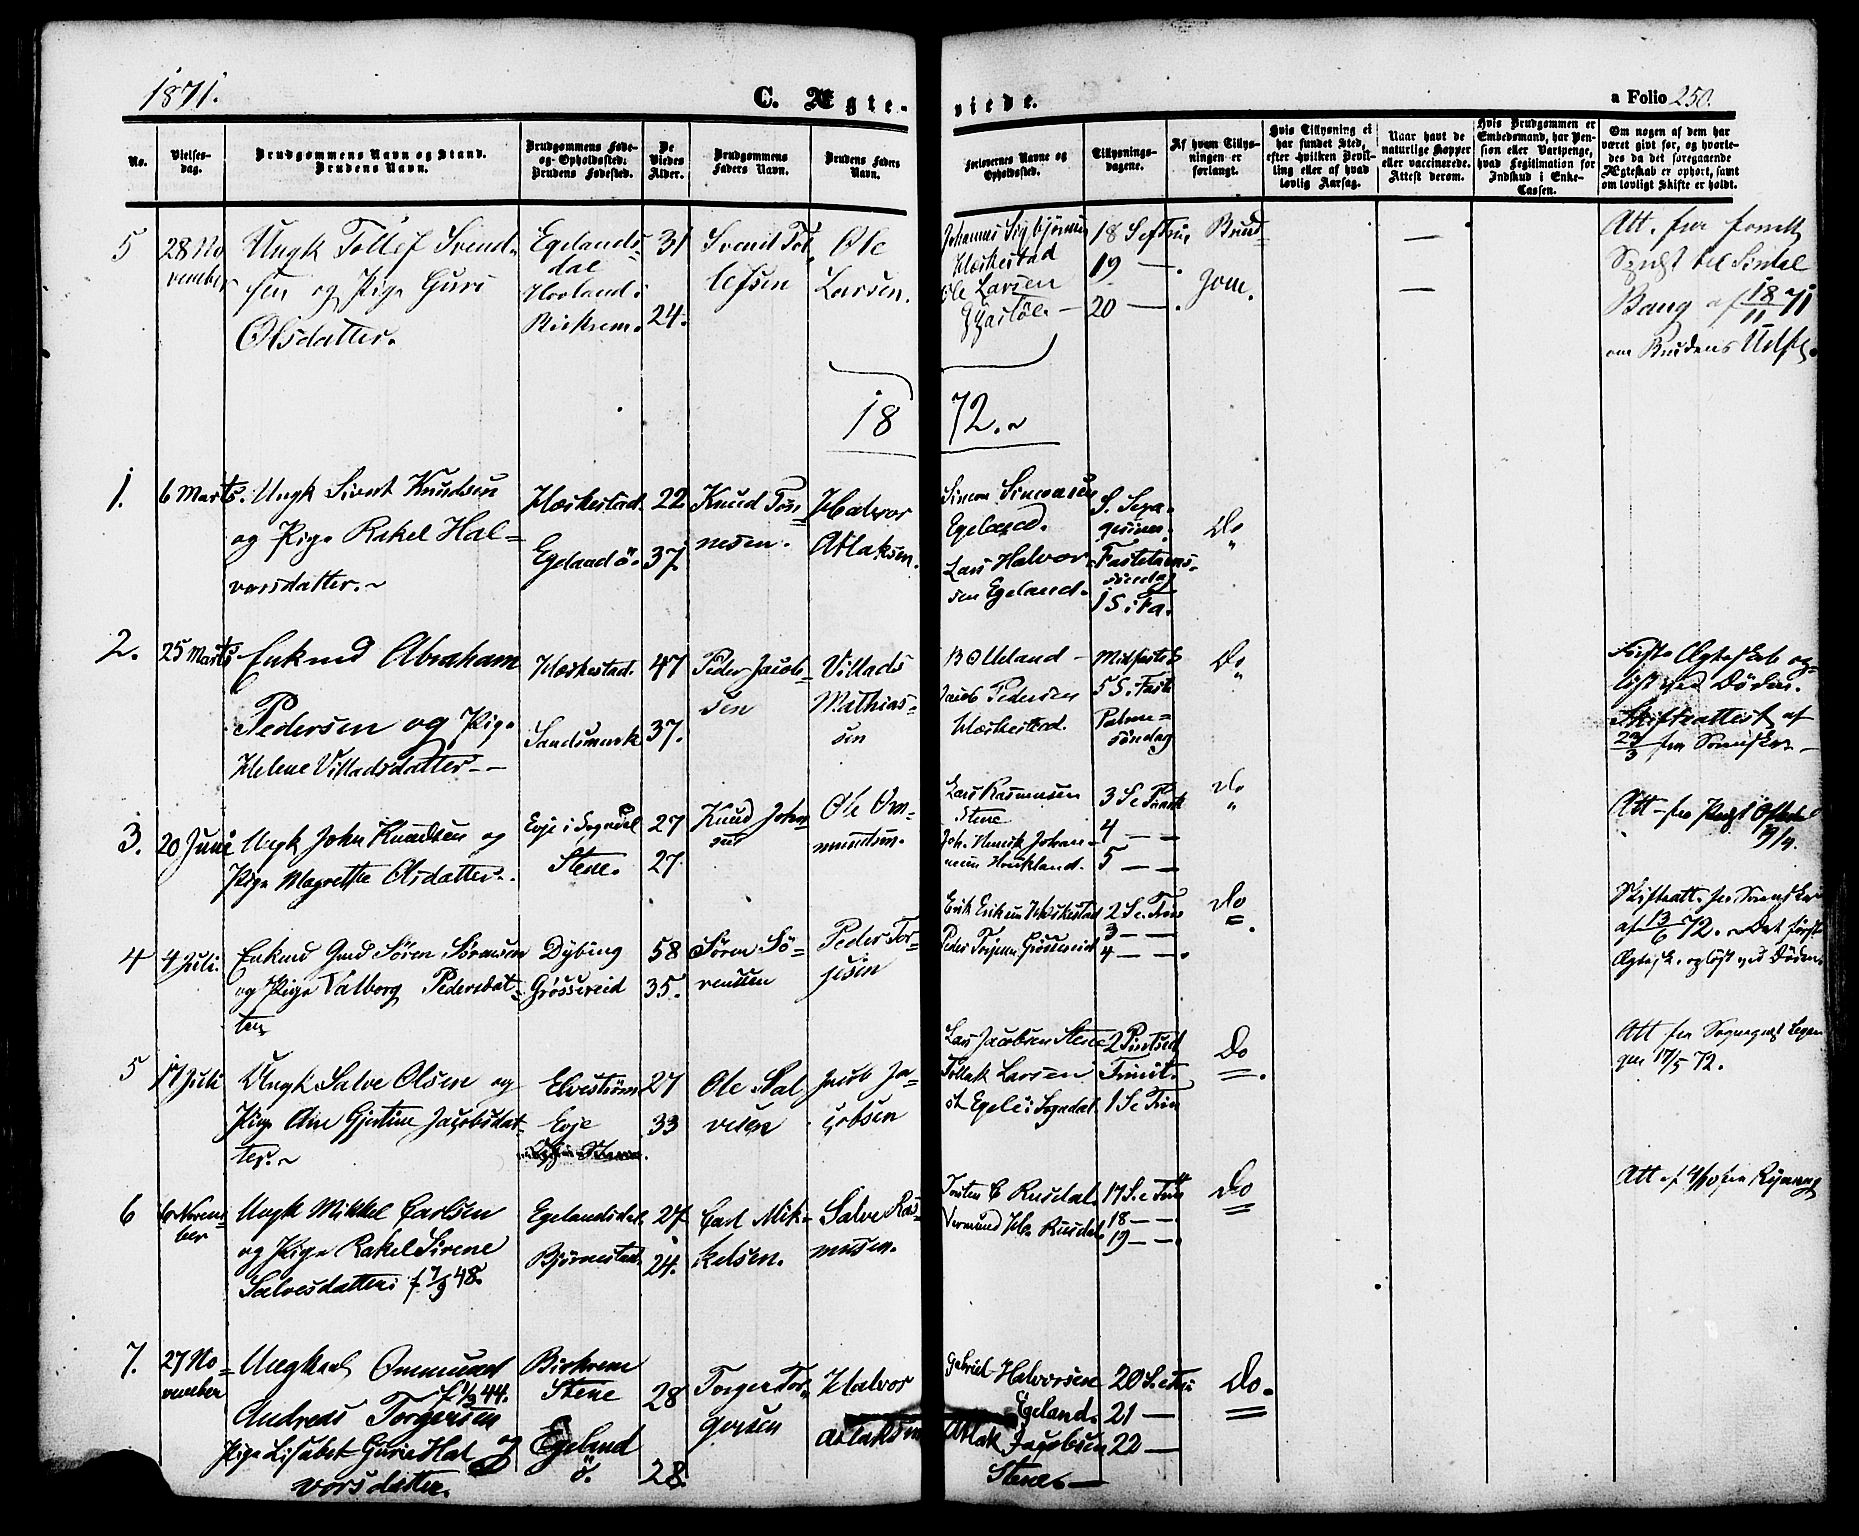 1871.
C. Ægte-
viede.
a Folio 250.
No.
Vielses-
dag.
Brudgommens Navn og Stand.
Brudens Navn.
Brudgommens Føde-
og Opholdssted.
Brudens Fødested.
De
Viedes
Alder.
Brudgommens
Faders Navn.
Brudens Faders
Navn.
Forlovernes Navne og
Opholdssted.
Tillysnings-
dagene.
Af hvem Tillys-
ningen er
forlangt.
Hvis Tillysning ei
har fundet Sted,
efter hvilken Bevil-
ling eller af hvad
lovlig Aarsag.
Naar havt de
naturlige Kopper
eller vaccinerede.
Attest derom.
Hvis Brudgommen er
Embedsmand, har Pen-
sion eller Vartpenge,
hvad Legitimation for
Indskud i Enke-
Cassen.
Om nogen af dem har
været gift før, og hvorle-
des da det foregaaende
Ægteskab er ophørt, samt
om lovligt Skifte er holdt.
5
28 No
vember
Ungk Tollef Svend-
sen og Pige Guri
Olsdatter.
Egelands-
dal
Hovland i
Birkrem.
31
24.
Svend Tol
lefsen
Ole
Larsen.
Johannes Sigbjørnsen
Hæskestad
Ole Larsen
18 S e Trin
19 —
20 —
Brud-
gom.
—
—
Att. fra
Sindal
Bang af 18/11 71
om Brudens Udfl.
18 72.
1.
6 Marts.
Ungk Sivert Knudsen
og Pige Rakel Hal-
vorsdatter.
Hæskestad
Egeland ö.
22
37
Knud Tön-
nesen.
Halvor
Atlaksen.
Simon Simonsen
Egeland.
Lars Halvor
sen Egeland.
S. Sepa-
gesimes.
Fastelavns-
söndag
1 S i Fa.
Do
2.
25 Marts
Enkmd Abraham
Pedersen og Pige
Helene Villadsdatter
Hæskestad.
Sandsmark
47
37.
Peder Jacob-
sen
Villads
Mathias-
sen
B O Ueland
Jacob Pedersen
Hæskestad.
Midfaste S
5 S i Fast
Palme-
söndag
Do
Første Ægteskab op-
løst ved Døden.
Skifteattest af
23/3 fra Sorenskr.
3.
20 Juni
Ungk John Knudsen og
Pige Magrethe Olsdatter.
Evje i Sogndal
Stene.
27
27.
Knud John-
sen
Ole Om-
mundsen.
Lars Rasmussen
Stene
Joh. Henrik Johan-
nesen Houkland.
3 S e Paask
4 —
5 —
Do
Att fra
19/4.
4
4 Juli.
Enkmd Gmd Sören Sörensen
og Pige Valborg Pedersdat-
ter
Dybing
Grössereid
58
35.
Sören Sö-
rensen
Peder Tor-
jesen
Erik Eriksen Hæskestad
Peder Torjesen Grössereid
2 S e Trin
3 —
4 —
Do
Skifteatt. fra Sorenskr
af 13/6 72. Det første
Ægtesk. opløst ved Döden.
5
17 Juli
Ungk Salve Olsen og
Pige Ane Gjertine Jacobsdat-
ter.
Elvestrøm
Evje
27
33
Ole Sal
vesen
Jacob Ja-
cobsen
Lars Jacobsen Stene
Tollak Larsen
Egele i Sogndal
2 Pintsed
Trinit.
1 S e Trin
Do
Att fra Sognepræst
17/5 72.
6
6 Novem-
ber
Ungk Mikkel Carlsen
og Pige Rakel Sirene
Salvesdatter f 7/9 48.
Egelandsdal
Bjørnestad
27
24.
Carl Mik-
kelsen.
Salve Ras-
mussen.
Torsten E Rusdal
Vermund Hs. Rusdal
17 S e Trin
18 —
19 —
Do
Att af 4/10 fra
7.
27 No-
vember
Ungkarl Ommund
f 1/3 44.
Andreas Torgersen
Pige Lisabet Gurie Hal
vorsdatter.
Birkrem
Stene
Egeland
ö.
28
28
Torger Tor-
gersen
Halvor
Atlaksen
Gabriel Halvorsen
Egeland.
Atlak Jacobsen
Stene.
20 S e Tri
21 —
22 —
Do.